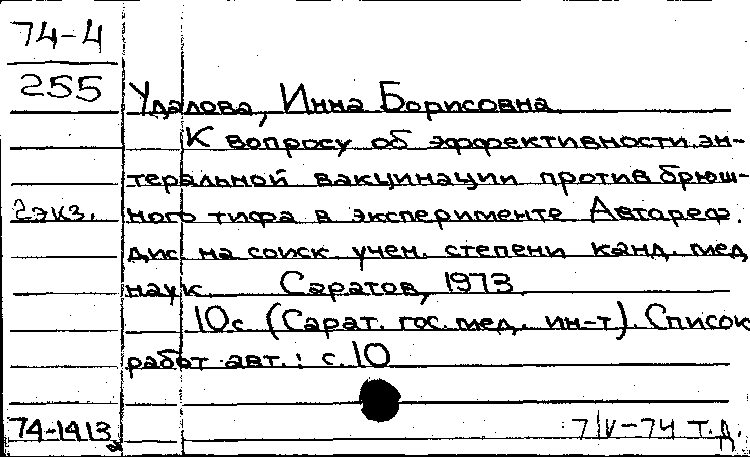 74-4
255
Удалова, Инна Борисовна
К вопросу об эффективности эн-
теральной вакцинации против брюш-
2экз. ного тифа в эксперименте Автореф.
дис на соиск учен. степени канд. мед
наук. Саратов, 1973.
10с (Сарат. гос. мед. ин-т). Список
работ авт.: с. 10
74-1413 7/V-74 т.д.